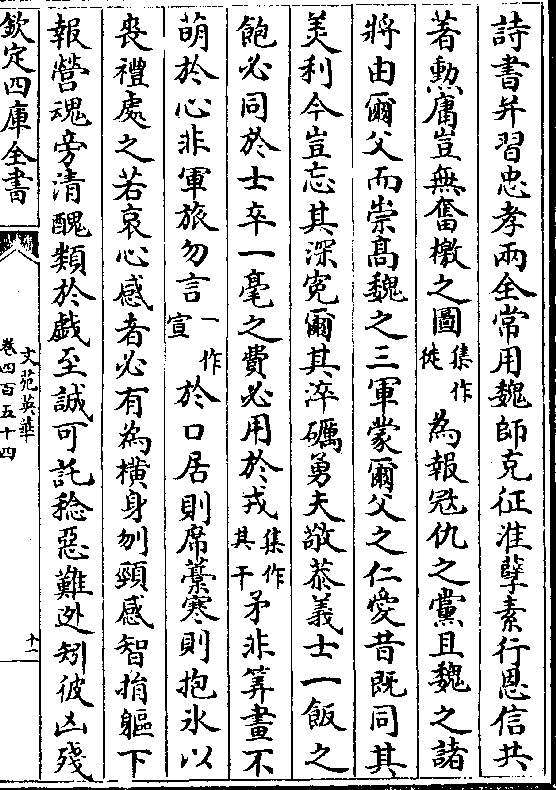 詩書并習忠孝兩全常用魏師克征淮孽素行恩信共
著勲庸豈無奮檄之圖集作徙為報寃仇之黨且魏之諸
將由爾父而崇髙魏之三軍蒙爾父之仁愛昔既同其
美利今豈忘其深寃爾其淬礪勇夫敬恭義士一飯之
飽必同於士卒一毫之費必用於戎集作其干矛非筭畫不
萌於心非軍旅勿言一作宣於口居則席藁寒則抱氷以
喪禮處之若哀心感者必有為橫身刎頸感智捐軀下
報營魂旁清醜類於戯至誠可託稔惡難逃矧彼凶殘
欽定四庫全書
文苑英華
卷四百五十四
十一